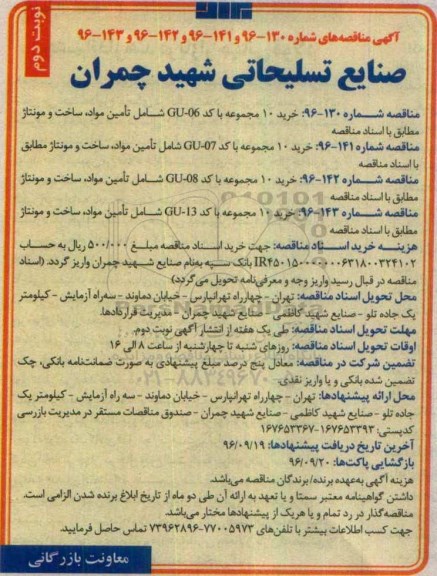 نوبت دوم
آگهی مناقصه‌های شماره ۱۳۰-۹۶ و ۱۴۱-۹۶ و ۱۴۲-۹۶ و ۱۴۳-۹۶
صنایع تسلیحاتی شهید چمران
مناقصه شماره ۱۳۰-۹۶: خرید ۱۰ مجموعه با کد GU-06 شامل تأمین مواد، ساخت و مونتاژ
مطابق با اسناد مناقصه
مناقصه شماره ۱۴۱-۹۶: خرید ۱۰ مجموعه با کد GU-07 شامل تأمین مواد، ساخت و مونتاژ مطابق
با اسناد مناقصه
مناقصه شماره ۱۴۲-۹۶: خرید ۱۰ مجموعه با کد GU-08 شامل تأمین مواد، ساخت و مونتاژ
مطابق با اسناد مناقصه
مناقصه شماره ۱۴۳-۹۶: خرید ۱۰ مجموعه با کد GU-13 شامل تأمین مواد، ساخت و مونتاژ
مطابق با اسناد مناقصه
هزینه خرید اسناد مناقصه: جهت خرید اسناد مناقصه مبلغ ۵۰۰/۰۰۰ ریال به حساب
بانک سپه به‌نام صنایع شهید چمران واریز گردد. (اسناد
مناقصه در قبال رسید واریز وجه و معرفی‌نامه تحویل می‌گردد)
محل تحویل اسناد مناقصه: تهران - چهارراه تهرانپارس - خیابان دماوند - سه‌راه آزمایش - کیلومتر
یک جاده تلو - صنایع شهید کاظمی - صنایع شهید چمران - مدیریت قراردادها.
مهلت تحویل اسناد مناقصه: طی یک هفته از انتشار آگهی نوبت دوم.
اوقات تحویل اسناد مناقصه: روزهای شنبه تا چهارشنبه از ساعت ۸ الی ۱۶
تضمین شرکت در مناقصه: معادل پنج درصد مبلغ پیشنهادی به صورت ضمانت‌نامه بانکی، چک
تضمین شده بانکی و یا واریز نقدی
محل ارائه پیشنهادها: تهران - چهارراه تهرانپارس - خیابان دماوند - سه راه آزمایش - کیلومتر یک
جاده تلو - صنایع شهید کاظمی - صنایع شهید چمران - صندوق مناقصات مستقر در مدیریت بازرسی
کدپستی: ۱۶۷۶۵۳۳۹۳-۱۶۷۶۵۳۳۶۷
آخرین تاریخ دریافت پیشنهادها: ۹۶/۰۹/۱۹
بازگشایی پاکت‌ها: ۹۶/۰۹/۲۰
هزینه آگهی به‌عهده برنده/برندگان مناقصه می‌باشد.
داشتن گواهینامه معتبر سمتا و یا تعهد به ارائه آن طی دو ماه از تاریخ ابلاغ برنده شدن الزامی است.
مناقصه‌گذار در رد تمام و یا هریک از پیشنهادها مختار می‌باشد.
جهت کسب اطلاعات بیشتر با تلفن‌های ۷۷۰۰۵۹۷۳-۷۳۹۶۲۸۹۶ تماس حاصل فرمایید.
معاونت بازرگانی